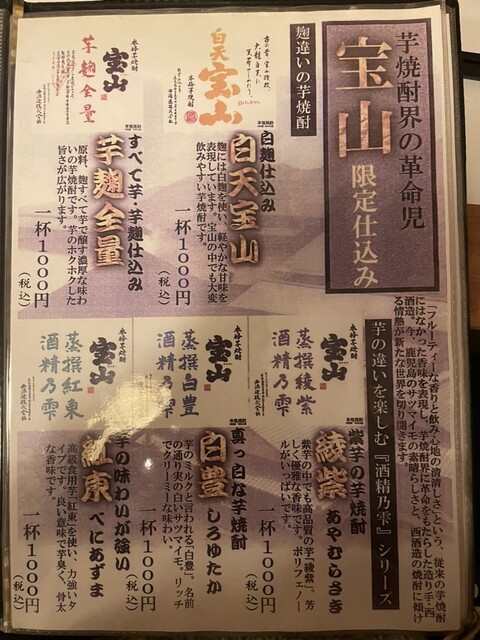 芋焼酎界の革命児
宝山 限定仕込み
「フルーティーな香りと飲み心地の清清しさ」という、従来の芋焼酎
にはなかった香味を表現し、芋焼酎界に革命をもたらした造り手・西
酒造。今、鹿児島のサツマイモの素晴らしさと、西酒造の焼酎に傾け
る情熱が新たな世界を切り開きます。
麹違いの芋焼酎
白天
宝山
本格芋焼酎
白麹仕込み
白天宝山
麹には白麹を使い、軽やかな甘味を
表現しています。宝山の中でも大変
飲みやすい芋焼酎です。
一杯 1000円
(税込)
本格芋焼酎
宝山
芋麹全量
すべて芋・芋麹仕込み
芋麹全量
原料、麹すべて芋で醸す濃厚な味わ
いの芋焼酎です。芋のホクホクした
旨さが広がります。
一杯 1000円
(税込)
芋の違いを楽しむ『酒精乃雫』シリーズ
本格芋焼酎
宝山
蒸撰綾紫
酒精乃雫
紫芋の芋焼酎
綾紫 あやむらさき
紫芋の中でも高品質の芋「綾紫」。芳
しく優雅な香味です。ポリフェノー
ルがいっぱいです。
一杯 1000円
(税込)
本格芋焼酎
宝山
蒸撰白豊
酒精乃雫
真っ白な芋焼酎
白豊 しろゆたか
芋のミルクと言われる「白豊」。名前
の通り実の白いサツマイモ。リッチ
でクリーミーな味わい。
一杯 1000円
(税込)
本格芋焼酎
宝山
蒸撰紅東
酒精乃雫
芋の味わいが強い
紅東 べにあずま
高級食用芋「紅東」を使い、力強いタ
イプです。良い意味で芋臭く、骨太
な香味です。
一杯 1000円
(税込)